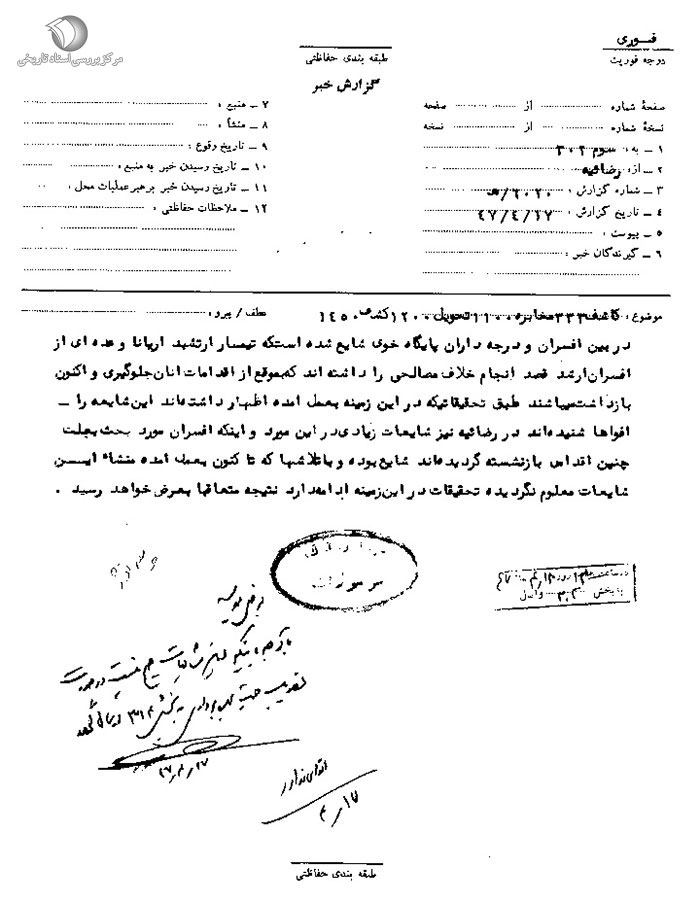 مرکز بررسی اسناد تاریخی
فـوری
درجه فوریت
طبقه بندی حفاظتی
گزارش خبر
صفحهٔ شماره از صفحه
نسخهٔ شماره از نسخه
۱ ـ به : سوم ۳۰۲
۲ ـ از : رضائیه
۳ ـ شماره گزارش : ۲۰۲۰/ه
۴ ـ تاریخ گزارش : ۴۷/۴/۱۷
۵ ـ پیوست :
۶ ـ گیرندگان خبر :
۷ ـ منبع :
۸ ـ منشأ :
۹ ـ تاریخ وقوع :
۱۰ ـ تاریخ رسیدن خبر به منبع :
۱۱ ـ تاریخ رسیدن خبر برهبر عملیات محل :
۱۲ ـ ملاحظات حفاظتی :
موضوع : کاشف ۳۳۳ مخابره ۱۱۰۰ تحویل ۱۲۰۰ کشف ۱۴۵۰
عطف / پیرو :
در بین افسران و درجه داران پایگاه خوی شایع شده استکه تیمسار ارتشبد اریانا و عده ای از
افسران ارشد قصد انجام خلاف مصالحی را داشته اند که بموقع از اقدامات انان جلوگیری و اکنون
بازداشت میباشند طبق تحقیقاتیکه در این زمینه بعمل امده اظهار داشته اند این شایعه را ـ
افواها شنیده اند در رضائیه نیز شایعات زیادی در این مورد و اینکه افسران مورد بحث بعلت
چنین اقدامی بازنشسته گردیده اند شایع بوده و با تلاشیها که تا کنون بعمل امده منشاء ایـسن
شایعات معلوم نگردیده تحقیقات در این زمینه ادامه دارد نتیجه متعاقبا بعرض خواهد رسید .
مرموزات
بعرض میرسد
با توجه باینکه
بخش ۳۱۴
۱۷/۴/۴۷
اقدامی ندارد
۱۷/۴
به بخش ۳۰۲ واصل
طبقه بندی حفاظتی